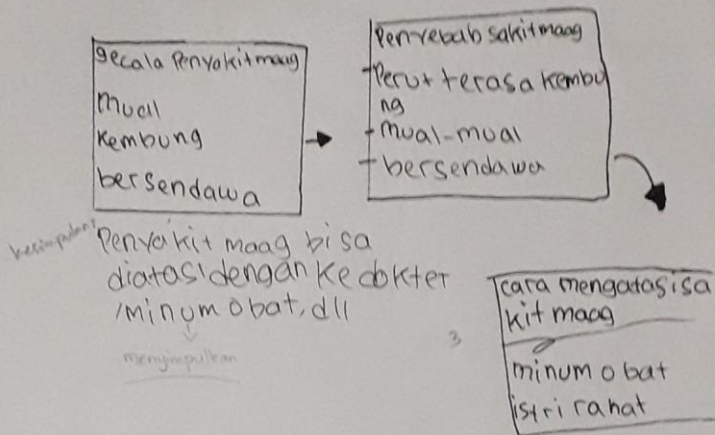 gecala Penyakitmaag
mual
kembung
bersendawa
Penyebab sakitmaag
-Perut terasa kembu
ng
-mual-mual
-bersendawa
kesimpulan:
Penyakit maag bisa
diatasi dengan kedokter
/minum obat, dll
menyimpulkan
3
cara mengatasi sa
kit maag
minum obat
istri rahat